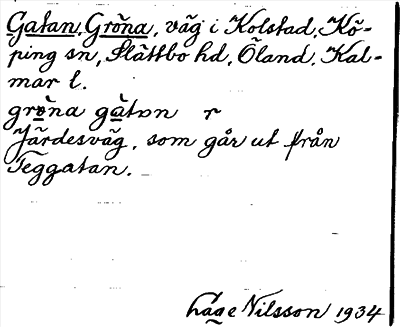 Gatan, Gröna, väg i Kolstad, Kö-
ping sn, Slättbo hd, Öland, Kal-
mar l.
grö̀na gàtɒn r
Järdesväg, som går ut från
Teggatan.
Lage Nilsson 1934